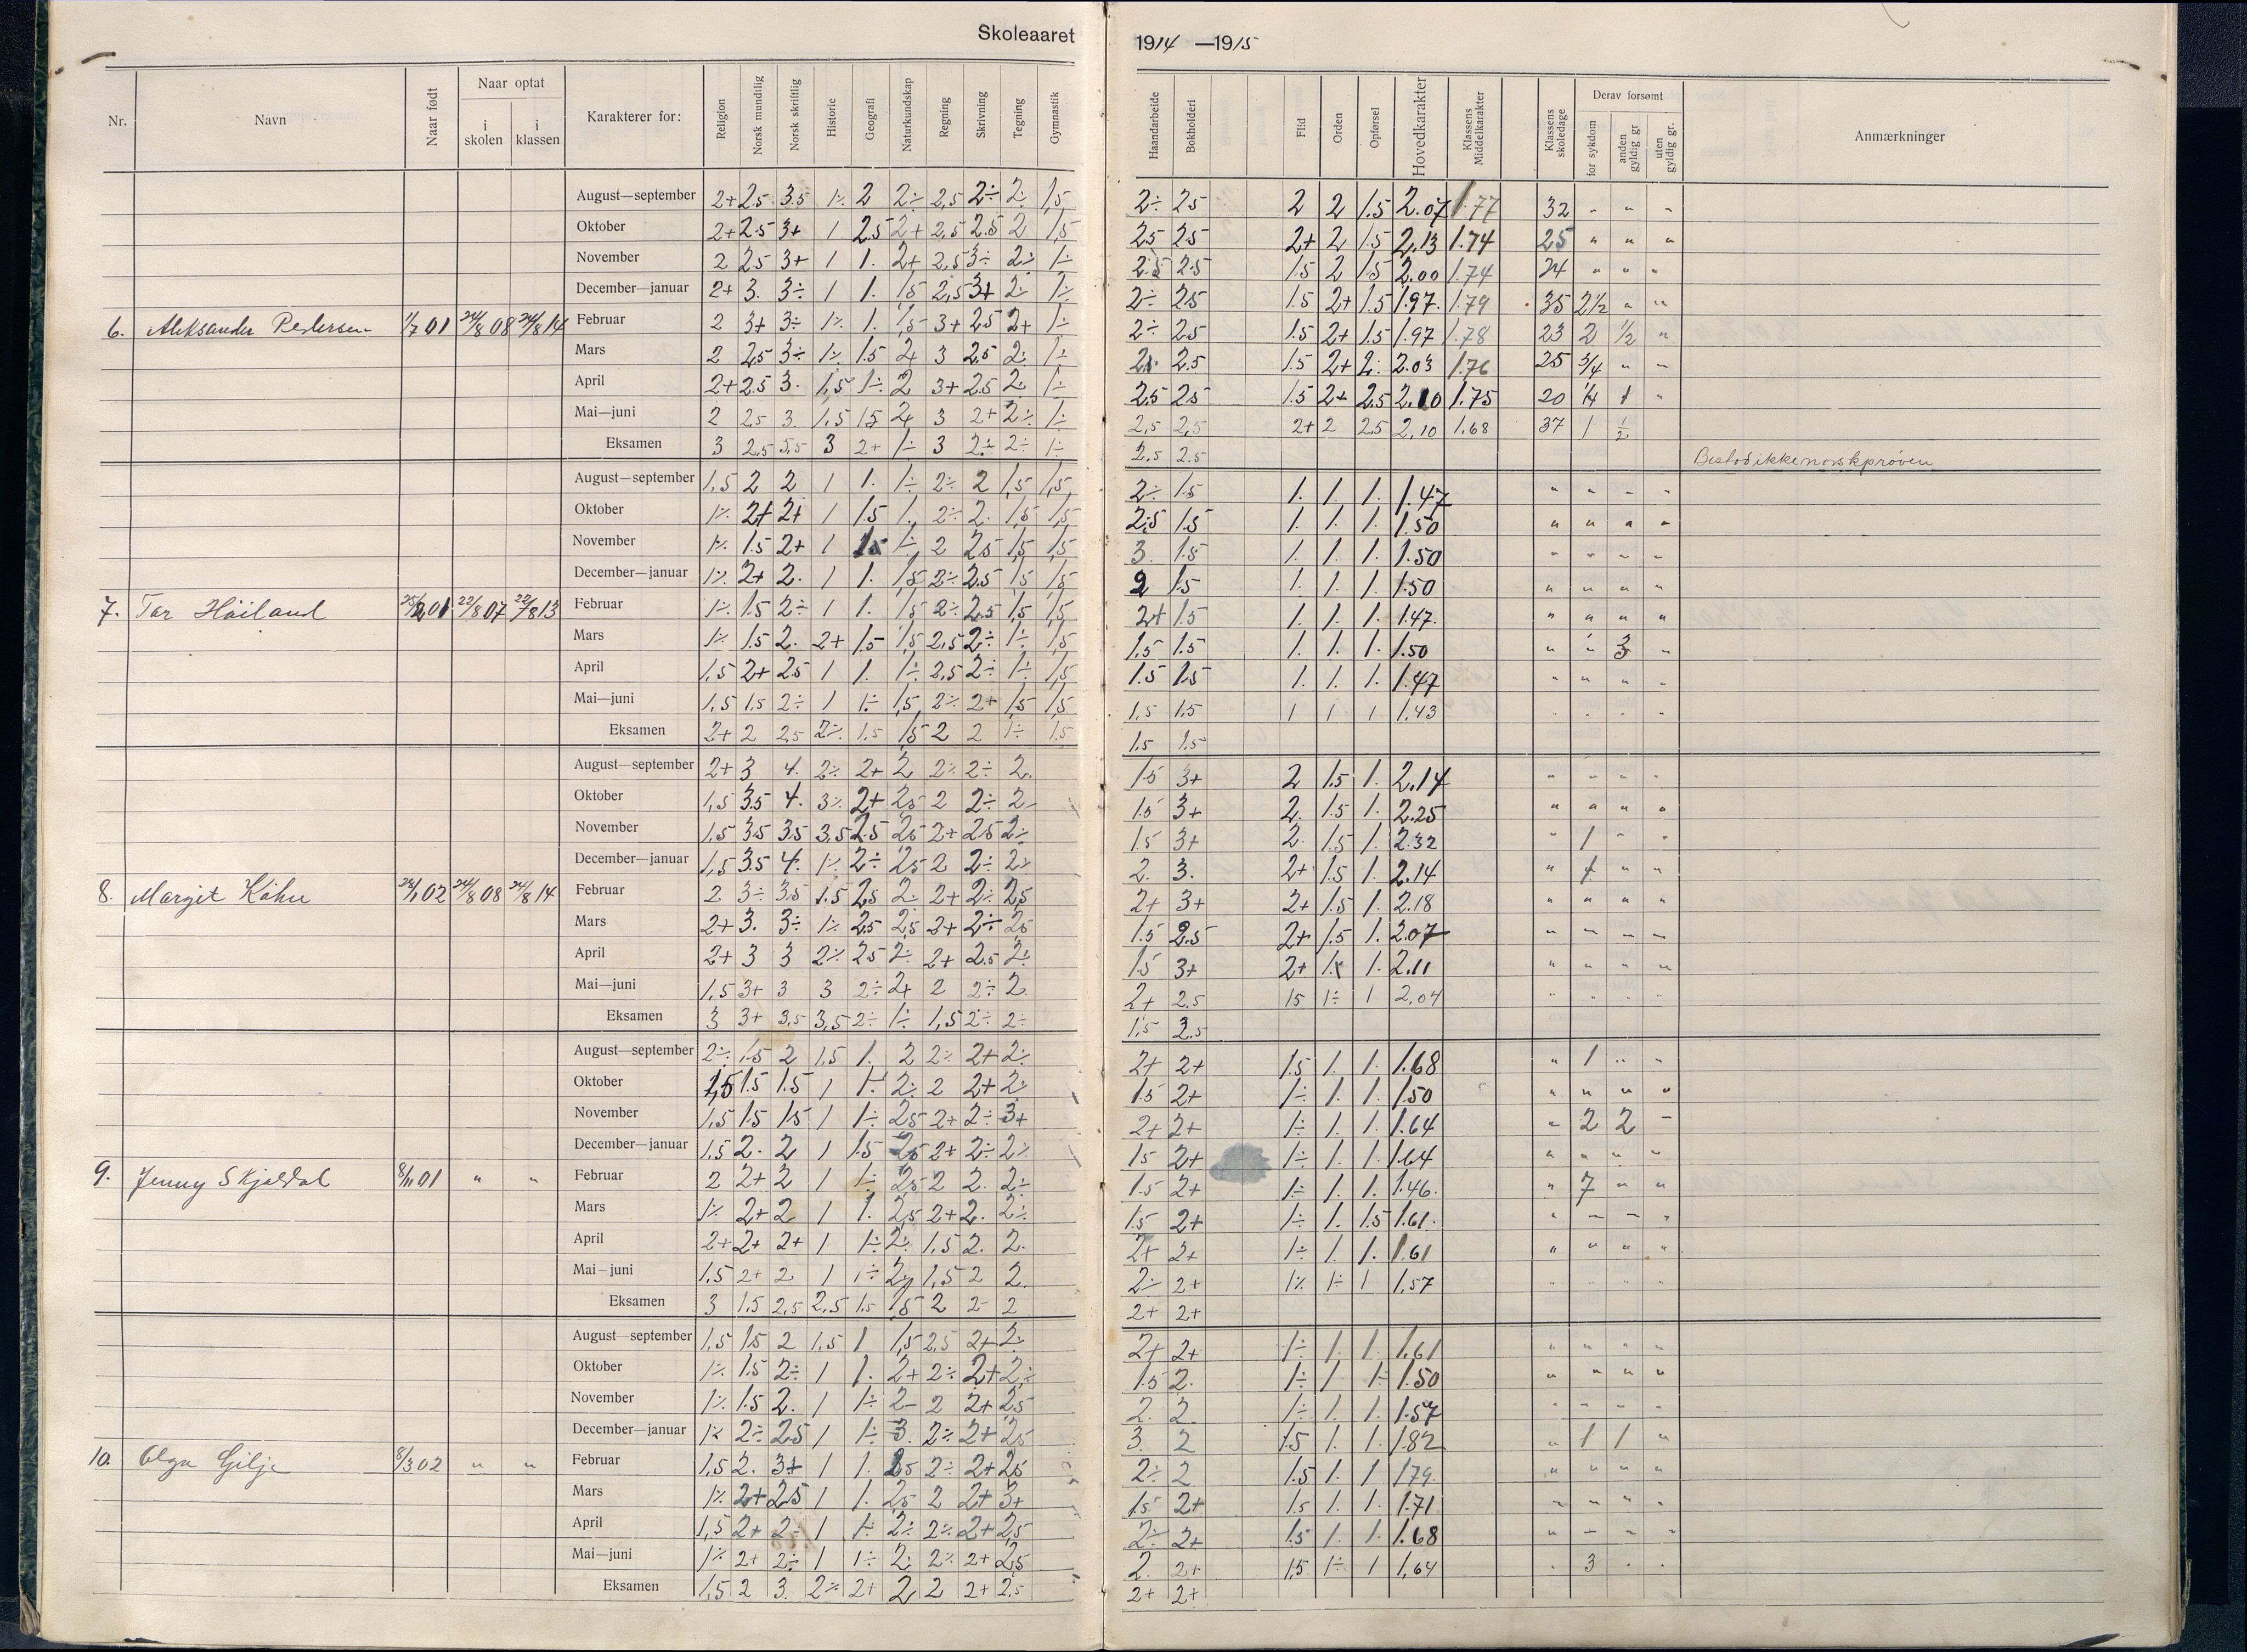 Skoleaaret 1914 —1915
Nr. Navn Naar født Naar optat i skolen i klassen Karakterer for: Religion Norsk mundtlig Norsk skriftlig Historie Geografi Naturkundskap Regning Skrivning Tegning Gymnastik Haandarbeide Bokholderi Flid Orden Opførsel Hovedkarakter Klassens Middelkarakter Klassens skoledage Derav forsømt for sykdom anden gyldig gr uten gyldig gr. Anmærkninger
August—september 2+ 2.5 3.5 1÷ 2 2÷ 2,5 2÷ 2÷ 1,5 2÷ 2.5 2 2 1.5 2.07 1.77 32 " " "
Oktober 2+ 2.5 3+ 1 2.5 2+ 2,5 2.5 2 1,5 2.5 2.5 2+ 2 1.5 2,13 1.74 25 " " "
November 2 2.5 3+ 1 1. 2+ 2,5 3÷ 2÷ 1÷ 2.5 2.5 1.5 2 1.5 2.00 1.74 24 " " "
December—januar 2+ 3. 3÷ 1 1. 1,5 2,5 3+ 2÷ 1÷ 2÷ 2.5 1.5 2+ 1.5 1.97. 1.79 35 2½ " "
6. Aleksander Pedersen 1/7 01 24/8 08 24/8 14 Februar 2 3+ 3÷ 1÷ 1. 1,5 3+ 2.5 2+ 1÷ 2÷ 2.5 1.5 2+ 1.5 1.97 1.78 23 2 ½ "
Mars 2 2.5 3÷ 1÷ 1.5 2+ 3 2.5 2÷ 1÷ 2.5 1.5 2+ 2. 2.03 1.76 25 ¾ " "
April 2+ 2.5 3. 1,5 1÷ 2 3+ 2.5 2÷ 1÷ 2.5 2.5 1.5 2+ 2.5 2.10 1.75 20 ¼ 1 "
Mai—juni 2 2.5 3. 1,5 1.5 2+ 3 2+ 2÷ 1÷ 2,5 2,5 2+ 2 2.5 2,10 1.68 37 1 ½
Eksamen 3 2,5 3,5 3 2+ 1÷ 3 2÷ 2÷ 1÷ 2.5 2.5 Bestod ikke norskprøven
August—september 1,5 2 2 1 1. 1÷ 2÷ 2 1,5 1,5 2÷ 1.5 1. 1. 1. 1.47 " " " "
Oktober 1÷ 2+ 2+ 1 1.5 1. 2÷ 2. 1,5 1,5 2.5 1.5 1. 1. 1. 1.50 " " " "
November 1÷ 1.5 2+ 1 1.5 1÷ 2 2.5 1,5 1,5 3. 1.5 1. 1. 1. 1.50 " " " "
December—januar 1÷ 2+ 2. 1 1. 1,5 2÷ 2.5 1,5 1,5 2 1.5 1. 1. 1. 1.50 " " " "
7. Tor Høiland 01. 22/8 07 22/8 13 Februar 1÷ 1.5 2÷ 1 1. 1,5 2÷ 2.5 1,5 1,5 2+ 1.5 1. 1. 1. 1.47. " " " "
Mars 1÷ 1.5 2. 2+ 1.5 1,5 2,5 2÷ 1÷ 1,5 1.5 1.5 1. 1. 1. 1.50 " " 3 "
April 1,5 2+ 2.5 1 1. 1÷ 2,5 2÷ 1÷ 1,5 1.5 1.5 1. 1. 1. 1.47 " " " "
Mai—juni 1,5 1.5 2÷ 1 1÷ 1,5 2÷ 2+ 1,5 1,5 1,5 1,5 1 1 1 1.43 " " " "
Eksamen 2+ 2 2,5 2÷ 1,5 1,5 2 2 1÷ 1.5 1.5 1.5
August—september 2+ 3 4. 2÷ 2+ 2 2÷ 2÷ 2. 1.5 3+ 2 1.5 1. 2.14 " " " "
Oktober 1,5 3.5 4. 3÷ 2+ 2.5 2 2÷ 2 1.5 3+ 2. 1.5 1. 2.25 " " " "
November 1,5 3.5 3.5 3,5 2.5 2.5 2+ 2.5 2÷ 1.5 3+ 2. 1.5 1. 2.32 " 1 " "
December—januar 1,5 3.5 4. 1÷ 2÷ 2.5 2 2÷ 2÷ 2. 3. 2+ 1.5 1. 2.14 " 1 " "
8. Margit Køhn 02 24/8 08 24/8 14 Februar 2 3÷ 3.5 1.5 2.5 2÷ 2+ 2÷ 2,5 2+ 3+ 2+ 1.5 1. 2.18 " " " "
Mars 2+ 3. 3÷ 1÷ 2.5 2,5 2+ 2÷ 2.5 1.5 2.5 2+ 1.5 1. 2.07 " " " "
April 2+ 3 3 2÷ 2.5 2÷ 2+ 2.5 2÷ 1.5 3+ 2+ 1. 2.11 " " " "
Mai—juni 1,5 3+ 3 3 2÷ 2+ 2 2÷ 2. 2+ 2.5 1.5 1÷ 1 2,04 " " " "
Eksamen 3 3+ 3,5 3,5 2÷ 1÷ 1,5 2÷ 2÷ 1,5 2,5
August—september 2÷ 1.5 2 1,5 1. 2 2÷ 2+ 2÷ 2+ 2+ 1.5 1. 1. 1.68 " 1 " "
Oktober 1,5 1.5 1.5 1 1÷ 2÷ 2 2+ 2÷ 1.5 2+ 1÷ 1. 1. 1.50 " " " "
November 1,5 1.5 1.5 1 1÷ 2.5 2+ 2÷ 3+ 2+ 2+ 1÷ 1. 1. 1.64 " 2 2 "
December—januar 1,5 2. 2 1 1.5 2.5 2+ 2÷ 2÷ 1.5 2+ 1÷ 1. 1. 1.64 " " " "
9. Jenny Skjeldal 8/11 01 " " Februar 2 2+ 2 1 1÷ 2.5 2 2. 2÷ 1.5 2+ 1÷ 1. 1. 1.46. " 7 " "
Mars 1÷ 2+ 2 1 1. 2,5 2+ 2. 2÷ 1.5 2+ 1÷ 1. 1.5 1.61. " " " "
April 2+ 2+ 2+ 1 1÷ 2÷ 1,5 2. 2. 2+ 2+ 1÷ 1. 1. 1.61 " " " "
Mai—juni 1,5 2+ 2 1 1÷ 2+ 1,5 2 2. 2÷ 2+ 1÷ 1÷ 1 1,57 " " " "
Eksamen 3 1.5 2,5 2,5 1.5 1,5 2 2 2 2+ 2+
August—september 1,5 1.5 2 1,5 1 1,5 2,5 2+ 2÷ 2+ 2+ 1÷ 1. 1. 1.61 " " " "
Oktober 1÷ 1.5 2÷ 1 1. 2+ 2÷ 2+ 2÷ 1.5 2. 1÷ 1 1÷ 1.50 " " " "
November 1÷ 1.5 2. 1 1÷ 2 2 2+ 2.5 2. 2. 1÷ 1. 1. 1.57 " " " "
December—januar 1÷ 2÷ 2.5 1 1÷ 3. 2÷ 2+ 2.5 3. 2 1.5 1. 1. 1.82 " 1 1 "
10. Olga Gilje 8/3 02 " " Februar 1,5 2. 3+ 1 1. 2.5 2÷ 2+ 2.5 2÷ 2 1.5 1. 1 1.79. " " " "
Mars 1÷ 2+ 2.5 1 1. 2.5 2 2+ 3+ 1.5 2+ 1.5 1. 1. 1.71 " " " "
April 1,5 2+ 2÷ 1 1÷ 2÷ 2÷ 2+ 2,5 2÷ 2+ 1.5 1. 1. 1.68 " " " "
Mai—juni 1÷ 2+ 2÷ 1 1÷ 2÷ 2÷ 2+ 2,5 2. 2+ 1,5 1÷ 1 1,64 " 3 " "
Eksamen 1,5 2 3. 2÷ 2+ 2 2 2+ 2.5 2+ 2+